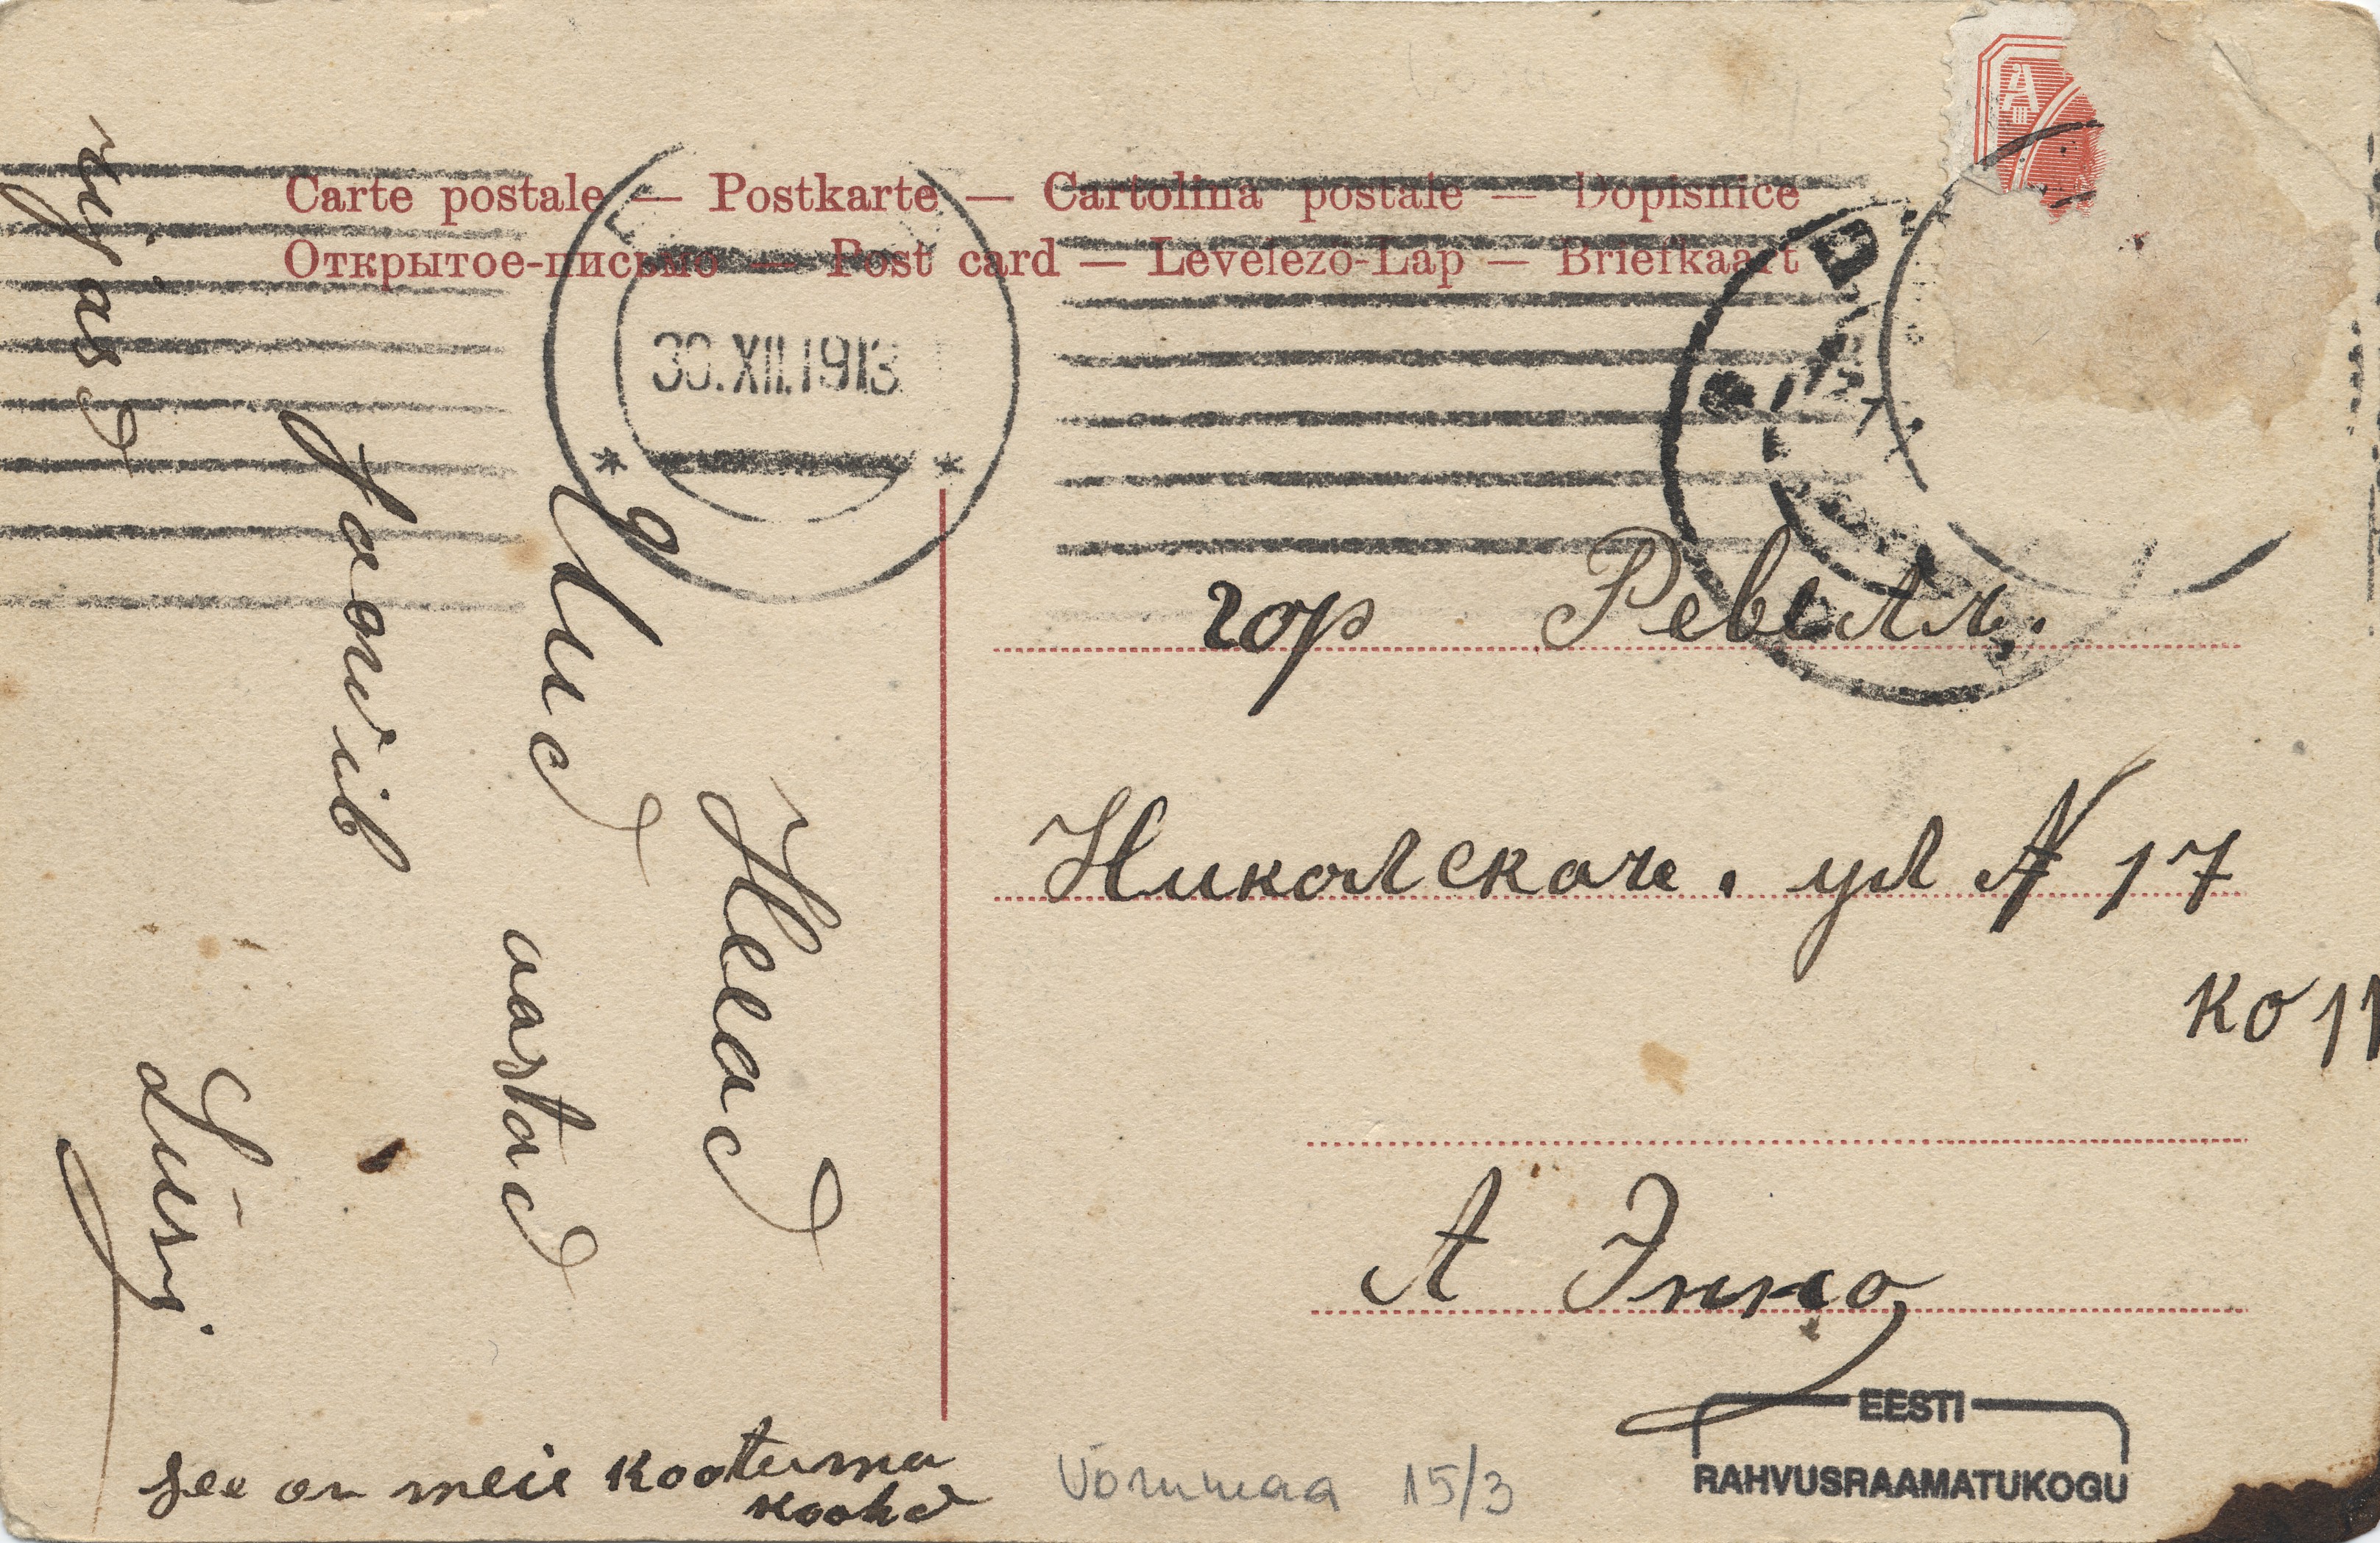 Carte postale — Postkarte — Cartolina postale — Dopisnice
Открытое-письмо — Post card — Levelezo-Lap — Briefkaart
30.XII.1913
гор Ревель.
Николская. ул № 17
ко 11
А Энно
Head
Uud aastad
soovib
Liisi.
see on meie kootuma
koohd
Võrumaa 15/3
EESTI
RAHVUSRAAMATUKOGU